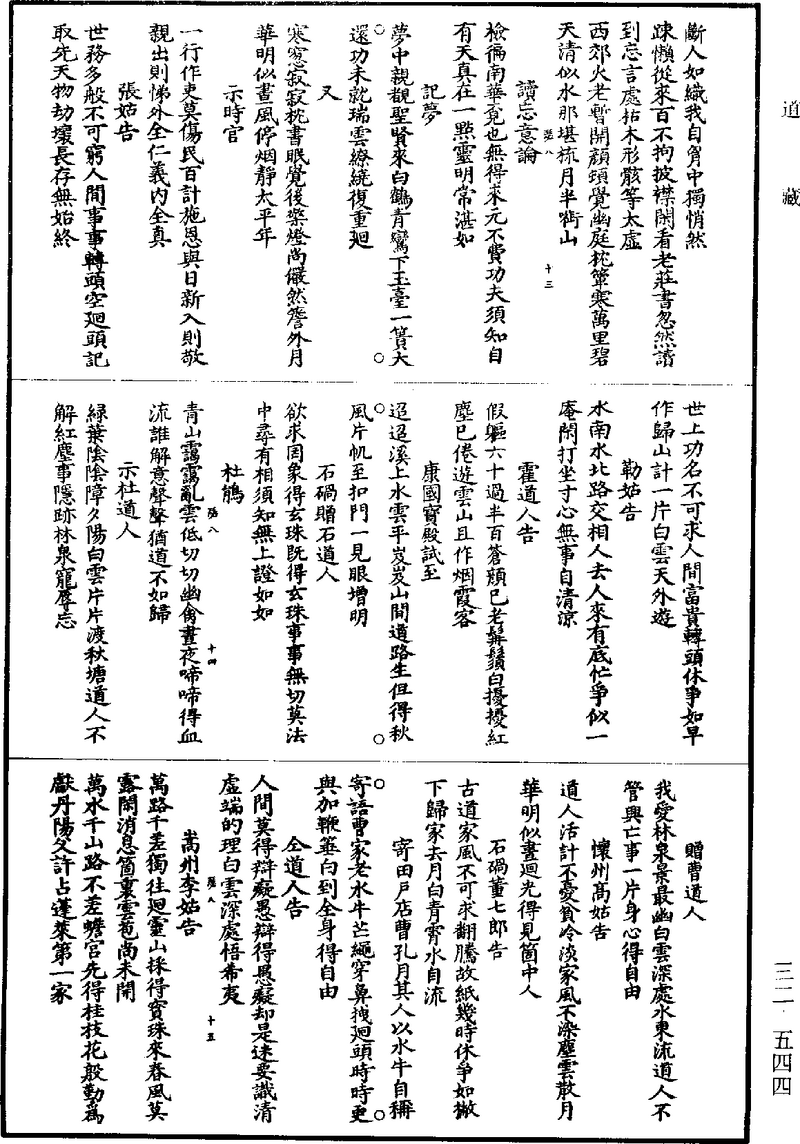 道藏
斷人如織我自胷中獨悄然
踈懶從來百不拘披襟閑看老莊書忽然讀
到忘言處枯木形骸等太虚
西郊火老暫開顔頭覺幽庭枕簟寒萬里碧
天清似水那堪梳月半銜山
讀忘意論
檢徧南華竟也無得來元不費功夫須知自
有天真在一點靈明常湛如
記夢
夢中親覩聖賢來白鶴青鸞下玉臺一簣大
還功未就瑞雲繚繞復重廻
又
寒窓寂寂枕書眠覺後殘燈尚儼然簷外月
華明似晝風停烟靜太平年
示時官
一行作吏莫傷民百計施恩與日新入則敬
親出則悌外全仁義内全真
張姑告
世務多般不可窮人間事事轉頭空廻頭記
取先天物劫壞長存無始終
世上功名不可求人間富貴轉頭休爭如早
作歸山計一片白雲天外遊
勒姑告
水南水北路交相人去人來有底忙爭似一
庵閑打坐寸心無事自清涼
霍道人告
假軀六十過半百蒼顔已老鬅鬚白擾擾紅
塵已倦遊雲山且作烟霞客
康國寶殿試至
迢迢溪上水雲平岌岌山間道路生但得秋
風片帆至扣門一見眼增明
石碢贈石道人
欲求罔象得玄珠既得玄珠事事無切莫法
中尋有相須知無上證如如
杜鵑
青山靄靄亂雲低切切幽禽晝夜啼啼得血
流誰解意聲聲猶道不如歸
示杜道人
綠葉陰陰障夕陽白雲片片渡秋塘道人不
解紅塵事隱跡林泉寵辱忘
贈曹道人
我愛林泉景最幽白雲深處水東流道人不
管興亡事一片身心得自由
懷州高姑告
道人活計不憂貧冷淡家風不染塵雲散月
華明似晝廻光得見箇中人
石碢董七郎告
古道家風不可求翻騰故紙幾時休爭如撇
下歸家去月白青霄水自流
寄田戶店曹孔月其人以水牛自稱
寄語曹家老水牛芒繩穿鼻拽廻頭時時更
與加鞭箠白到全身得自由
仝道人告
人間莫得辯癡愚辯得愚癡却是迷要識清
虚端的理白雲深處悟希夷
嵩州李姑告
萬路千差獨往廻靈山採得寳珠來春風莫
露閑消息箇裏雲苞尚未開
萬水千山路不差蟾宮先得桂枝花殷勤爲
獻丹陽久許占蓬萊第一家
弦八
十三
弦八
十四
弦八
十五
三二·五四四